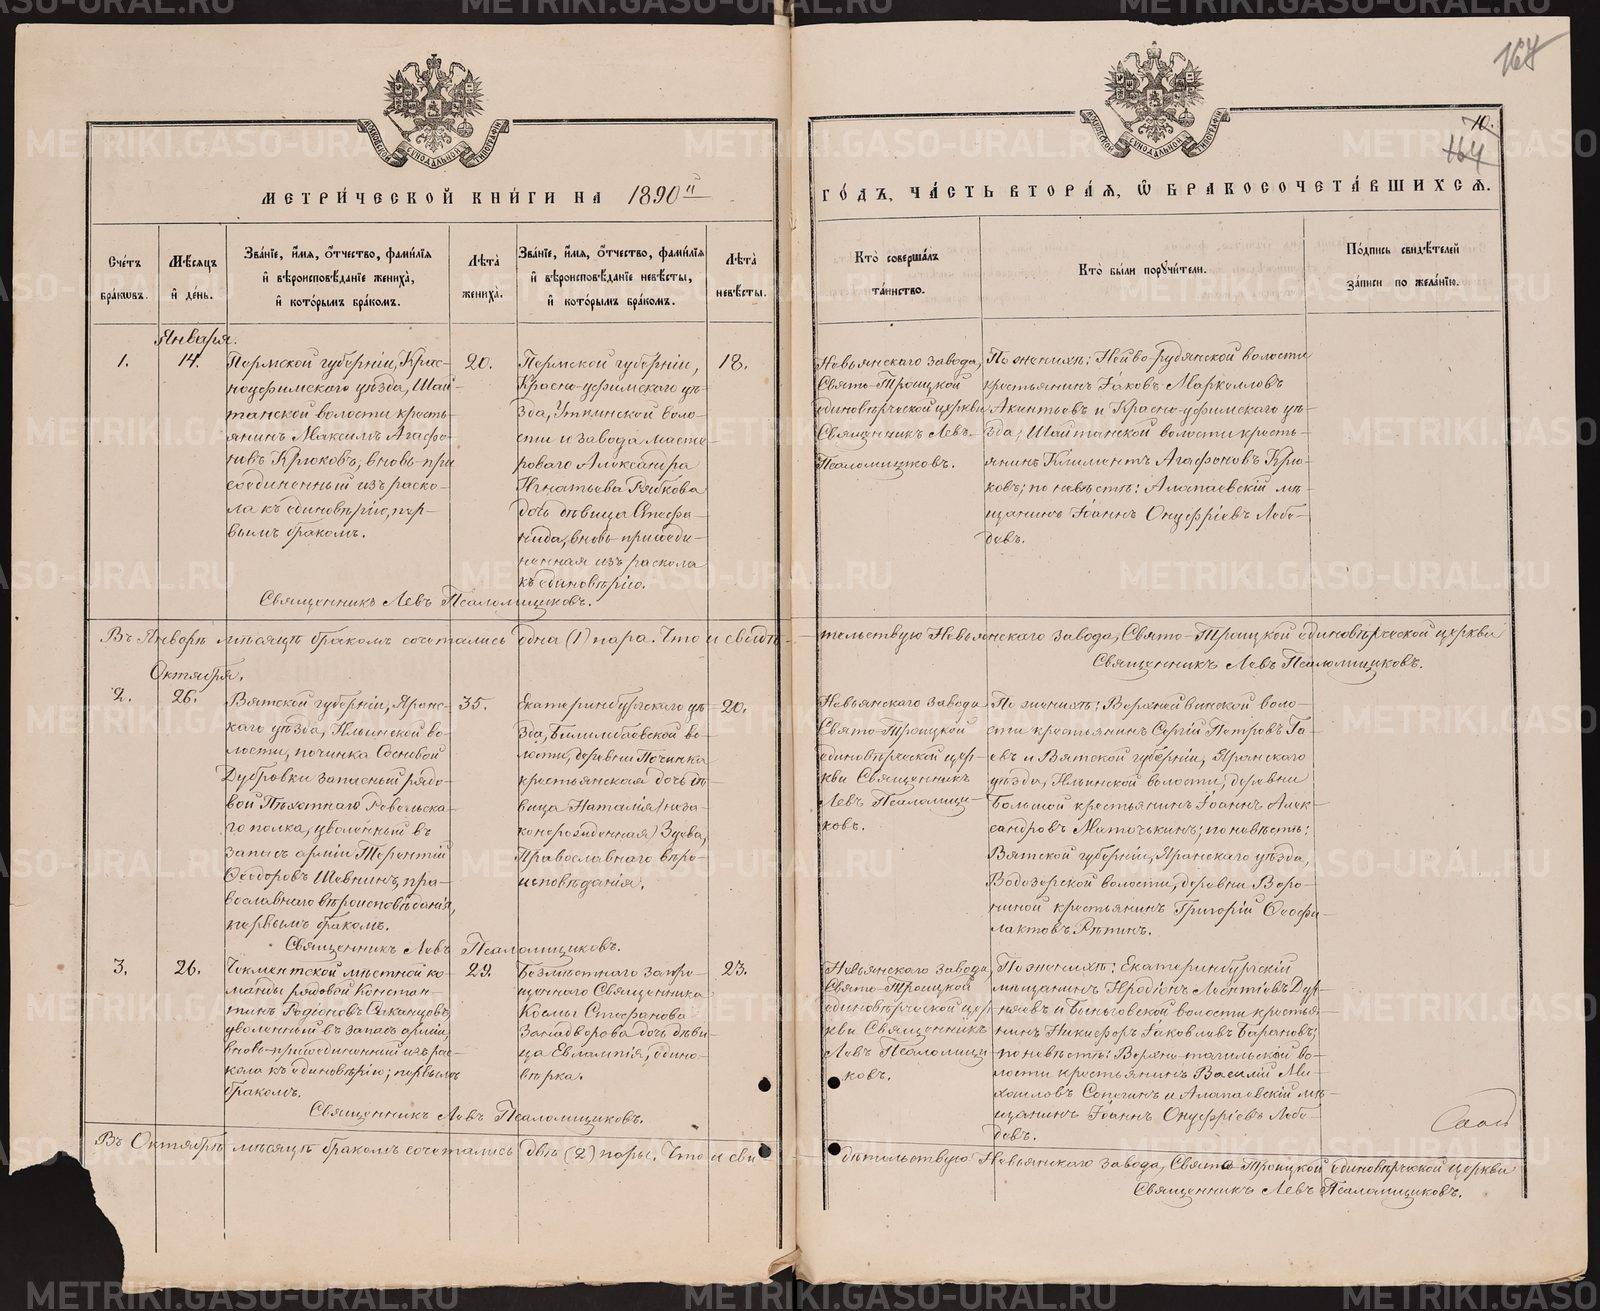 164
10.
164
МОСКОВСКОЙ СѴНОДАЛЬНОЙ ТИПОГРАФІИ
МОСКОВСКОЙ СѴНОДАЛЬНОЙ ТИПОГРАФІИ
МЕТРИ́ЧЕСКОЙ КНИ́ГИ НА 1890й ГО́ДЪ, ЧА́СТЬ ВТОРА́Я, Ѽ БРАКОСОЧЕТА́ВШИХСЯ.
Сче́тъ
бра́кѡвъ.
Мѣ́сяцъ
и҆ де́нь.
Зва́нїе, и҆́мя, ѻ҆́тчество, фами́лїя
и҆ вѣроисповѣ́данїе жениха̀,
и҆ кото́рымъ бра́комъ.
Лѣ́та
жениха̀.
Зва́нїе, и҆́мя, ѻ҆́тчество, фами́лїя
и҆ вѣроисповѣ́данїе невѣ́сты,
и҆ кото́рымъ бра́комъ.
Лѣ́та
невѣ́сты.
Кто̀ соверша́лъ
та́инство.
Кто̀ бы́ли порꙋчи́тели.
По́дпись свидѣ́телей
за́писи по жела́нїю.
Января.
1.
14.
Пермской губерніи, Крас-
ноуфимскаго уѣзда, Шай-
танской волости кресть-
янинъ Максимъ Агафо-
новъ Крюковъ, вновь при
соединенный изъ раско-
ла къ единовѣрію, пер-
вымъ бракомъ.
20.
Пермской губерніи,
Красно-уфимскаго уѣ-
зда, Уткинской воло-
сти и завода масте-
роваго Александра
Игнатьева Рябкова
дочь дѣвица Стефа-
нида, вновь присоеди-
ненная изъ раскола
къ единовѣрію.
18.
Невьянскаго завода,
Свято-Троицкой
единовѣрческой церкви
Священникъ Левъ
Псаломщиковъ.
По женихѣ: Нейво-рудянской волости
крестьянинъ Іаковъ Маркелловъ
Акинтьевъ и Красно-уфимскаго уѣ-
зда, Шайтанской волости кресть-
янинъ Климентъ Агафоновъ Крю-
ковъ; по невѣстѣ: Алапаевскій мѣ-
щанинъ Іоаннъ Онуфріевъ Лебе-
девъ.
Священникъ Левъ Псаломщиковъ.
Въ Январѣ мѣсяцѣ бракомъ сочетались одна (1) пара. Что и свидѣ-тельствую Невьянскаго завода, Свято-Троицкой единовѣрческой церкви
Священникъ Левъ Псаломщиковъ.
Октября.
2.
26.
Вятской губерніи, Яранс-
каго уѣзда, Ильинской во-
лости, починка Сосновой
Дубровки запасный рядо-
вой Пѣхотнаго Ревельска-
го полка, уволенный въ
запасъ арміи Терентій
Ѳеодоровъ Шевнинъ, пра-
вославнаго вѣроисповѣданія,
первымъ бракомъ.
35.
Екатеринбургскаго уѣ-
зда, Билимбаевской во-
лости, деревни Починка
крестьянская дочь дѣ-
вица Наталія (неза-
конорожденная) Зуева,
Православнаго вѣро-
исповѣданія.
20.
Невьянскаго завода
Свято-Троицкой
единовѣрческой цер-
кви Священникъ
Левъ Псаломщи-
ковъ.
По женихѣ: Верхнейвинской воло-
сти крестьянинъ Сергій Петровъ Га-
евъ и Вятской губерніи, Яранскаго
уѣзда, Ильинской волости, деревни
Большой крестьянинъ Іоаннъ Алек-
сандровъ Маточкинъ; по невѣстѣ:
Вятской губерніи, Яранскаго уѣзда,
Водозерской волости, деревни Воро-
ниной крестьянинъ Григорій Ѳеофи-
лактовъ Рѣпинъ.
Священникъ Левъ Псаломщиковъ.
3.
26.
Чекментской мѣстной ко-
манды рядовой Констан-
тинъ Родіоновъ Сиканцовъ,
уволенный въ запасъ арміи,
вновь-присоединенный изъ рас-
кола къ единовѣрію; первымъ
бракомъ.
29.
Безмѣстнаго запре-
щеннаго Священника
Космы Стефанова
Западворова дочь дѣви-
ца Евлампія, едино-
вѣрка.
23.
Невьянскаго завода
Свято-Троицкой
единовѣрческой цер-
кви Священникъ
Левъ Псаломщи-
ковъ.
По женихѣ: Екатеринбургскій
мѣщанинъ Иродіонъ Леонтіевъ Дур-
няевъ и Быньговской волости крестья-
нинъ Никифоръ Іаковлевъ Барановъ;
по невѣстѣ: Верхне-тагильской во-
лости крестьянинъ Василій Ми-
хаиловъ Сопегинъ и Алапаевскій мѣ-
щанинъ Іоаннъ Онуфріевъ Лебе-
девъ.
Священникъ Левъ Псаломщиковъ.
Въ Октябрѣ мѣсяцѣ бракомъ сочетались двѣ (2) пары. Что и сви-дѣтельствую Невьянскаго завода, Свято-Троицкой единовѣрческой церкви
Священникъ Левъ Псаломщиковъ.
METRIKI.GASO-URAL.RU